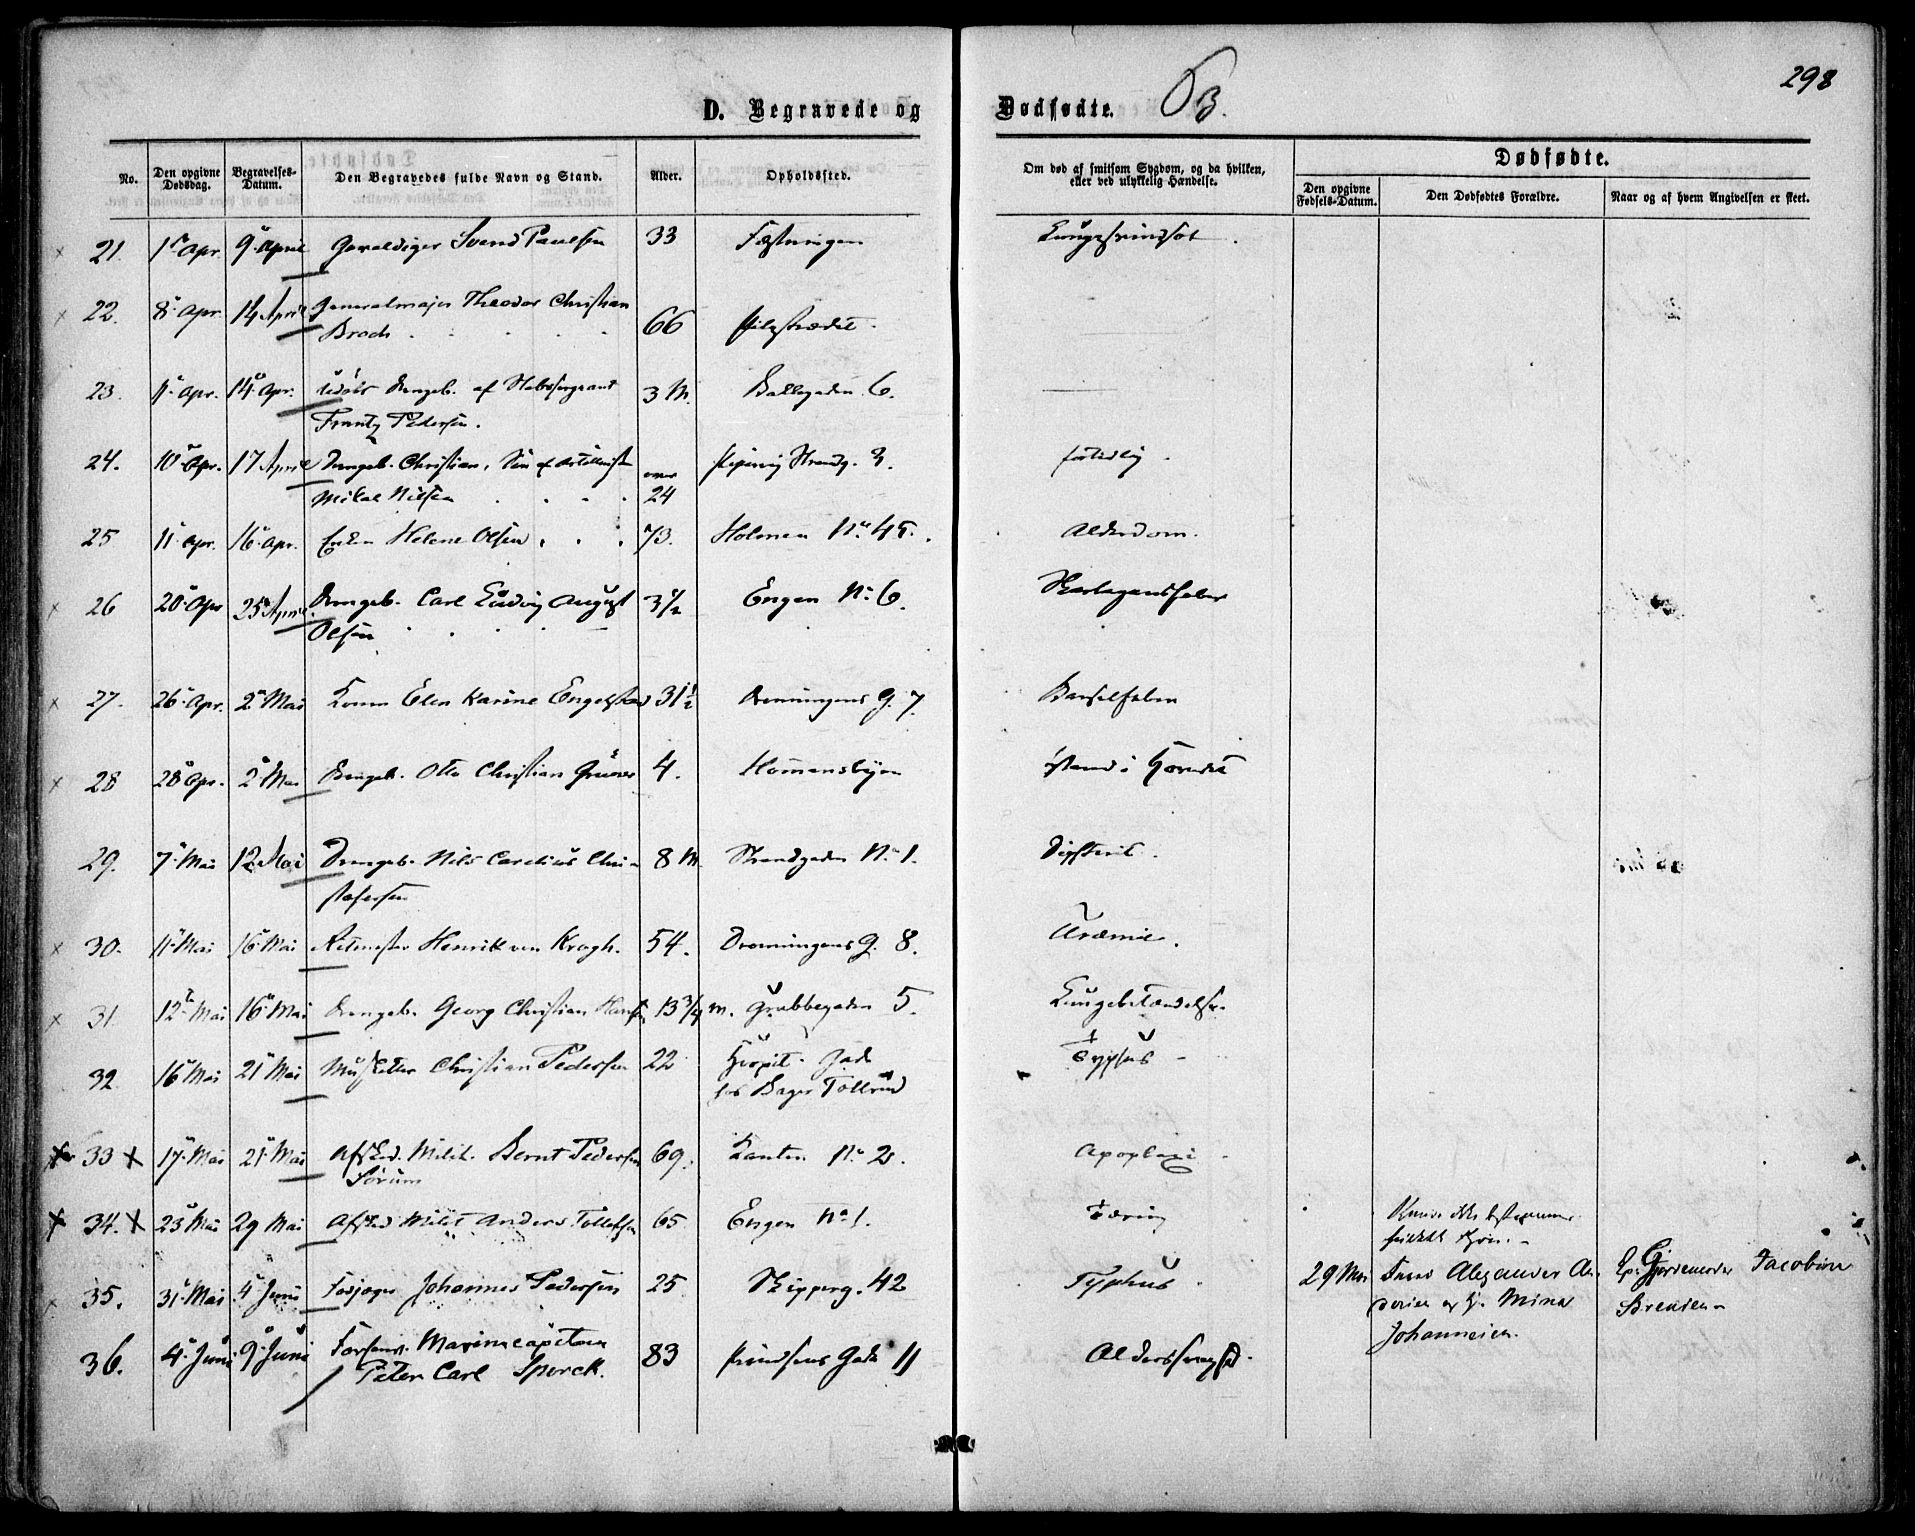 298
D. Begravede og Dødfødte. B.
No. Den opgivne Dødsdag. Begravelses-Datum. Den Begravedes fulde Navn og Stand. Alder. Opholdssted. Om død af smitsom Sygdom, og da hvilken, eller ved ulykkelig Hændelse. Dødfødte.
Den opgivne Fødsels-Datum. Den Dødfødtes Forældre. Naar og af hvem Angivelsen er skeet.
21. 1 Apr. 9 April Gevaldiger Svend Paulsen 33 Fæstningen Lungesvindsot
22. 8 Apr. 14 April Generalmajor Theodor Christian
Broch 66 Pilestrædet
23. 11 Apr. 14 Apr. udøbt Drengeb. af Stabssergeant 3 M. Ballegaden 6.
Frantz Pedersen.
24. 10 Apr. 17 April Drengeb. Christian, Søn af Artillerist Pipervig Strandg. 3. fortidlig
Mikal Nilsen 24
25 11 Apr. 16 Apr. Enken Helene Olsen 73. Holmen No 45. Alderdom.
26 20 Apr 25 April Drengeb. Carl Ludvig August 3 1/2 Engen No 6. Skarlagensfeber
Olsen
27. 26 Apr. 2 Mai Konen Elen Karine Engelstad 31 1/2 Dronningens G. 7. Barselfeber
28 28 Apr. 2 Mai Drengeb. Otto Christian Grüner 4. Homansbyen Vand i Hovedet
29. 7 Mai 12 Mai Drengeb. Nils Carelius Chri- 8 M. Strandgaden No 1. Difterit.
stofersen
30. 11 Mai 16 Mai Ritmester Henrik von Krogh. 54. Dronningens G. 8. Uræmie.
31. 12 Mai 16 Mai Drengeb. Georg Christian Hansen 13 3/4 m. Grubbegaden 5. Lungebetændelse
32. 16 Mai 21 Mai Musketer Christian Pedersen 22 Hospit. Gade Typhus
hos Bager Tollerud
33 17 Mai 21 Mai Afsked. Milit. Bernt Pedersen 69. Kanten No 2. Apoplexi
Sørum
34. 23 Mai 29 Mai Afsked Milit Anders Tollefsen 65 Engen No 1. Tæring
35. 31 Mai 4 Juni Fodjæger Johannes Pedersen 25 Skipperg. 42 Typhus 29 Mai Alexander An- Gjordemoder Jacobine
dersen og H. Mina
Johannesen.
36. 4 Juni 9 Juni Forhenv. Marinecapitain
Peter Carl Sporck. 83 Prindsens Gade 11 Alderssvaghed.